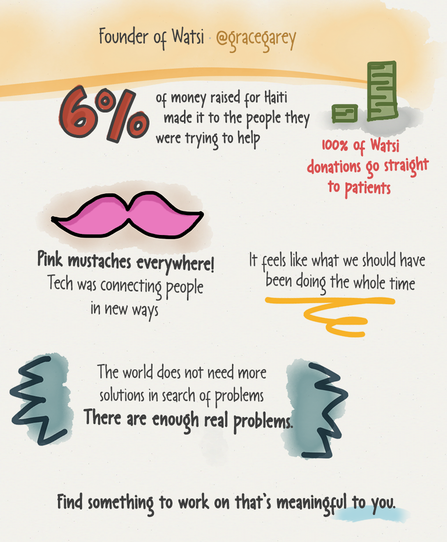 Founder of Watsi @gracegarey
6%
of money raised for Haiti
made it to the people they
were trying to help
100% of Watsi
donations go straight
to patients
Pink mustaches everywhere!
Tech was connecting people
in new ways
It feels like what we should have
been doing the whole time
The world does not need more
solutions in search of problems
There are enough real problems.
Find something to work on that's meaningful to you.